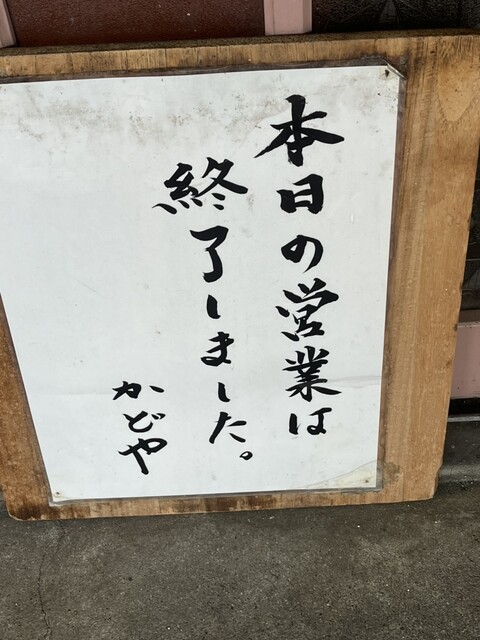 本日の営業は
終了しました。
かどや